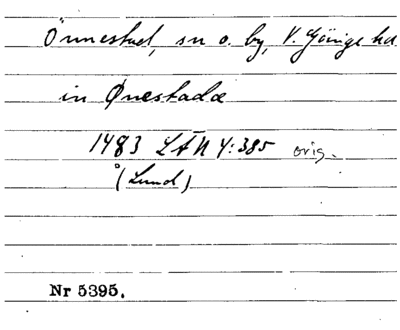 Önnestad, sn o. by, V. Göinge hd
in Ønestadæ
1483 LÄN 4:385 orig.
(Lund)
Nr 5395.